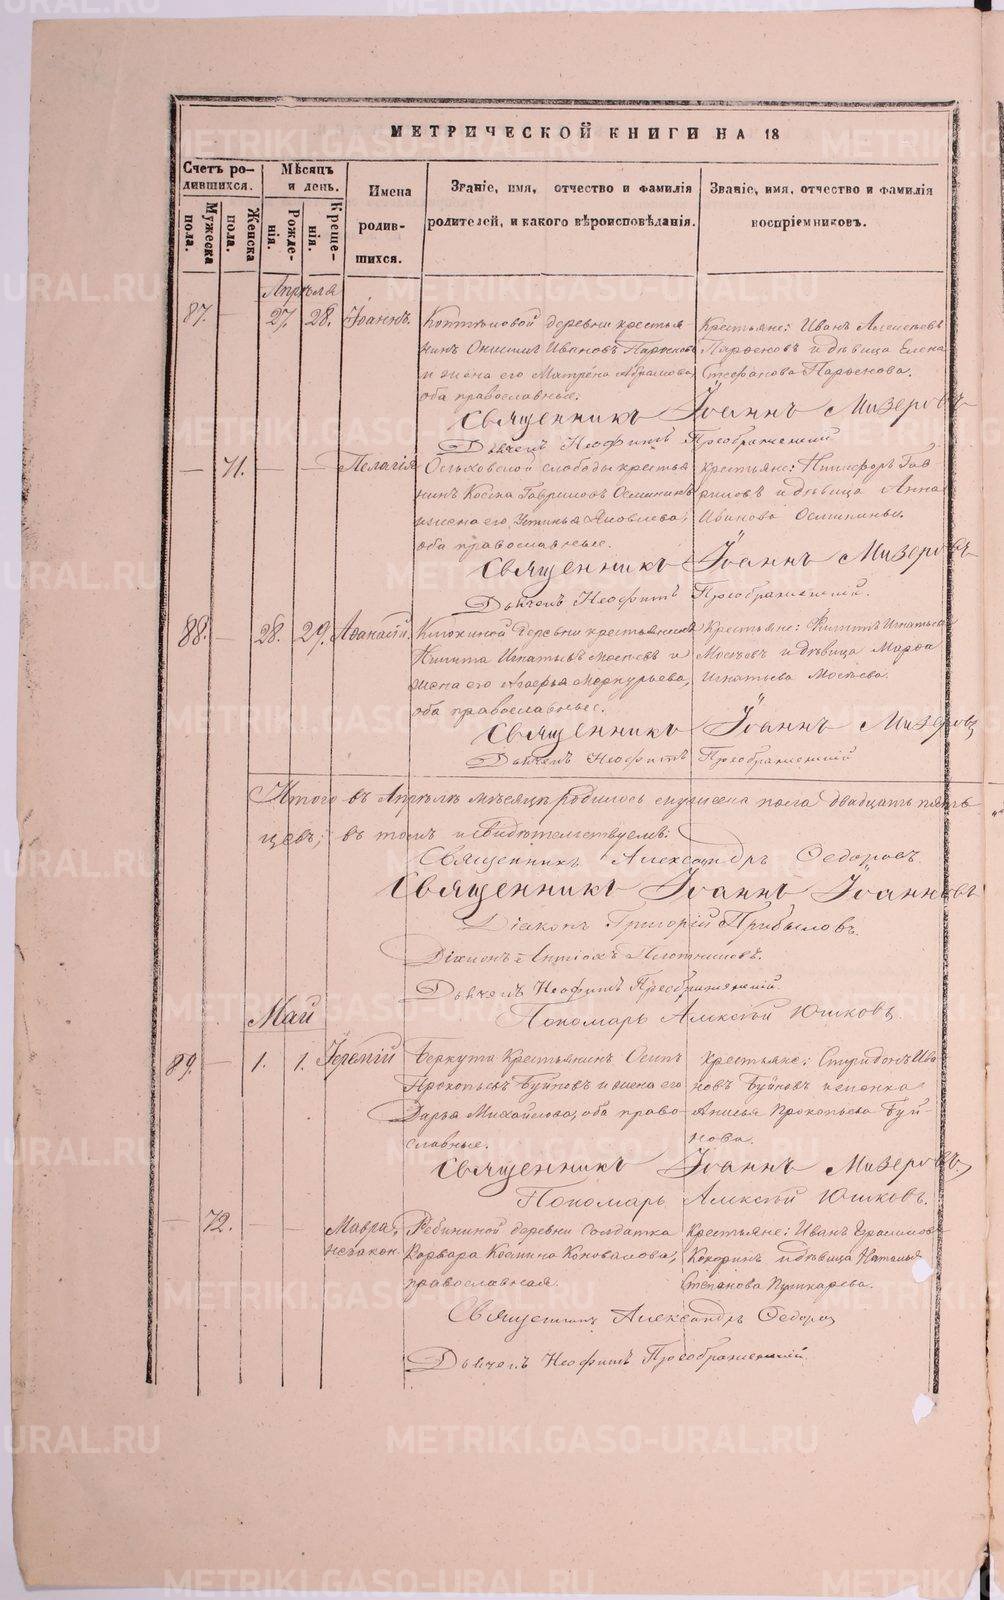 МЕТРИЧЕСКОЙ КНИГИ НА 18
Счетъ ро-
дившихся.
Мужеска
пола.
Женска
пола.
Мѣсяцъ
и день.
Рожде-
нія.
Креще-
нія.
Имена
родив-
шихся.
Званіе, имя, отчество и фамилія
родителей, и какого вѣроисповѣданія.
Званіе, имя, отчество и фамилія
воспріемниковъ.
Апрѣля
87. — 27. 28. Іоаннъ.
деревни крестья-
нинъ Онисимъ Ивановъ
и жена его Матрёна Абрамова,
оба православные.
Крестьяне: Иванъ Алексѣевъ
Парѳеновъ и дѣвица Елена
Стефанова Парѳенова.
Священникъ Іоаннъ Мизеровъ
Дьячекъ Неофитъ Преображенскій
— 71. — — Пелагія
слободы крестья
нинъ Косма Гавриловъ Осмининъ
и жена его Устинья Яковлева,
оба православные.
Крестьяне: Никифоръ Гав-
риловъ и дѣвица Анна
Иванова Осминины.
Священникъ Іоаннъ Мизеровъ
Дьячекъ Неофитъ Преображенскій.
88. — 28. 29. Аѳанасій.
деревни крестьянинъ
Никита Игнатьевъ и
жена его Агаѳья Меркурьева,
оба православные.
Крестьяне: Игнатьевъ
и дѣвица Марѳа
Игнатьева
Священникъ Іоаннъ Мизеровъ
Дьячекъ Неофитъ Преображенскій
Итого въ Апрѣлѣ мѣсяцѣ родилось женска пола двадцать
въ томъ и свидѣтельствуемъ:
Священникъ Александръ Ѳедоровъ.
Священникъ Іоаннъ Іоанновъ
Діаконъ Григорій Прибыловъ.
Діаконъ Антіохъ Плотниковъ.
Дьячекъ Неофитъ Преображенскій
Пономарь Алексѣй Юшковъ.
Май
89. — 1. 1.
Крестьянинъ Осипъ
Прокопьевъ Буйновъ и жена его
Дарья Михайлова, оба право-
славные.
Крестьяне: Спиридонъ Ива
новъ Буйновъ и женка
Анисья Прокопьева Буй-
нова.
Священникъ Іоаннъ Мизеровъ
Пономарь Алексѣй Юшковъ.
— 72. — — Мавра,
незакон.
деревни солдатка
Варвара Космина Коновалова,
православная.
Крестьяне: Иванъ Герасимовъ
Кокоринъ и дѣвица Наталья
Степанова Пушкарева.
Священникъ Александръ Ѳедоров
Дьячекъ Неофитъ Преображенскій
METRIKI.GASO-URAL.RU